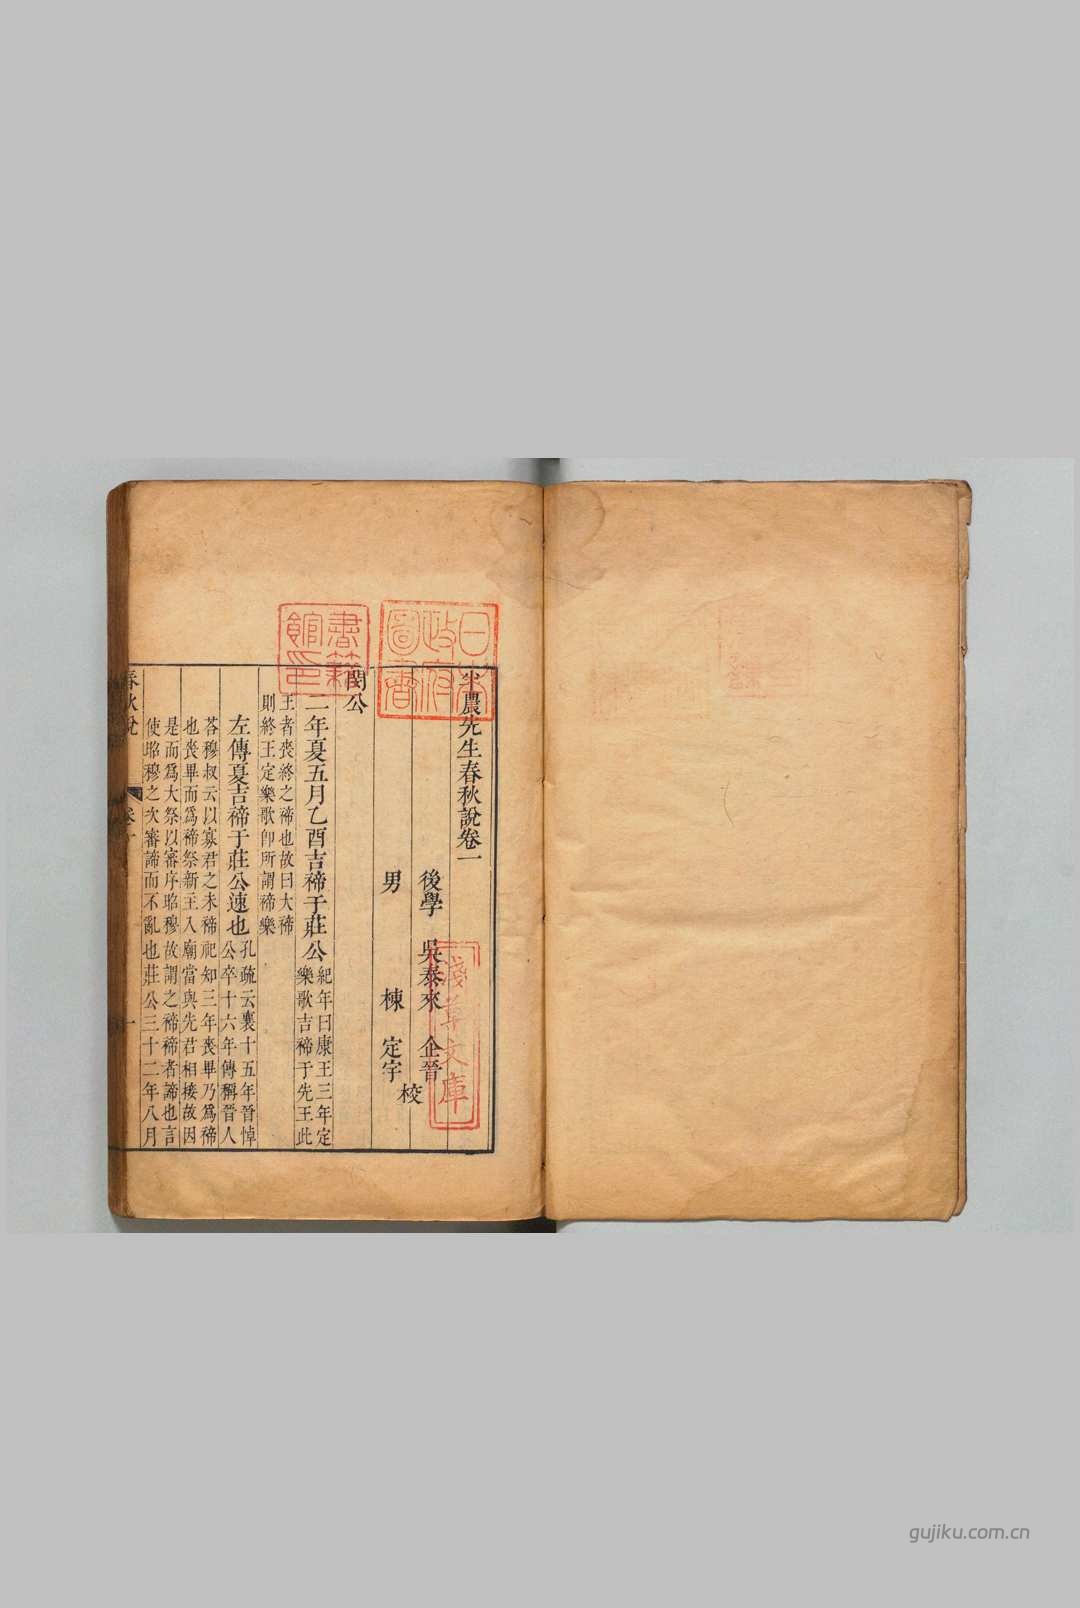 半農先生春秋說卷一
後學 吳泰來 企晉
校
男 棟 定宇
閔公
二年夏五月乙酉吉禘于莊公紀年曰康王三年定
樂歌吉禘于先王此
王者喪終之禘也故曰大禘
則終王定樂歌卽所謂禘樂
左傳夏吉禘于莊公速也孔疏云襄十五年晉悼
公卒十六年傳稱晉人
荅穆叔云以寡君之未禘祀知三年喪畢乃爲禘
也喪畢而爲禘祭新主入廟當與先君相接故因
是而爲大祭以審序昭穆故謂之禘禘者諦也言
使昭穆之次審諦而不亂也莊公三十二年八月
春秋說 卷一 一
日本政府圖書
書籍館印
淺草文庫
gujiku.com.cn